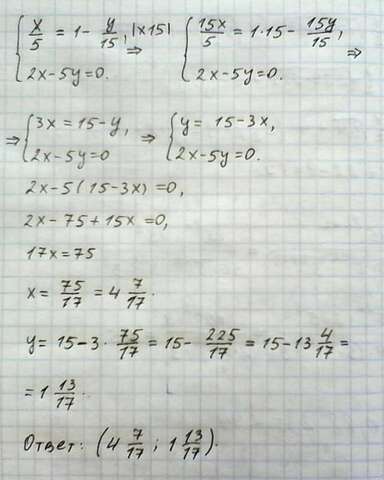 { x/5 = 1 - y/15, |x15| ⇒ { 15x/5 = 1·15 - 15y/15, ⇒
2x-5y=0. 2x-5y=0.
⇒ { 3x = 15-y, ⇒ { y = 15-3x,
2x-5y=0 2x-5y=0.
2x-5(15-3x)=0,
2x-75+15x=0,
17x=75
x = 75/17 = 4 7/17.
y = 15-3· 75/17 = 15- 225/17 = 15-13 4/17 =
= 1 13/17.
Ответ: (4 7/17 ; 1 13/17).